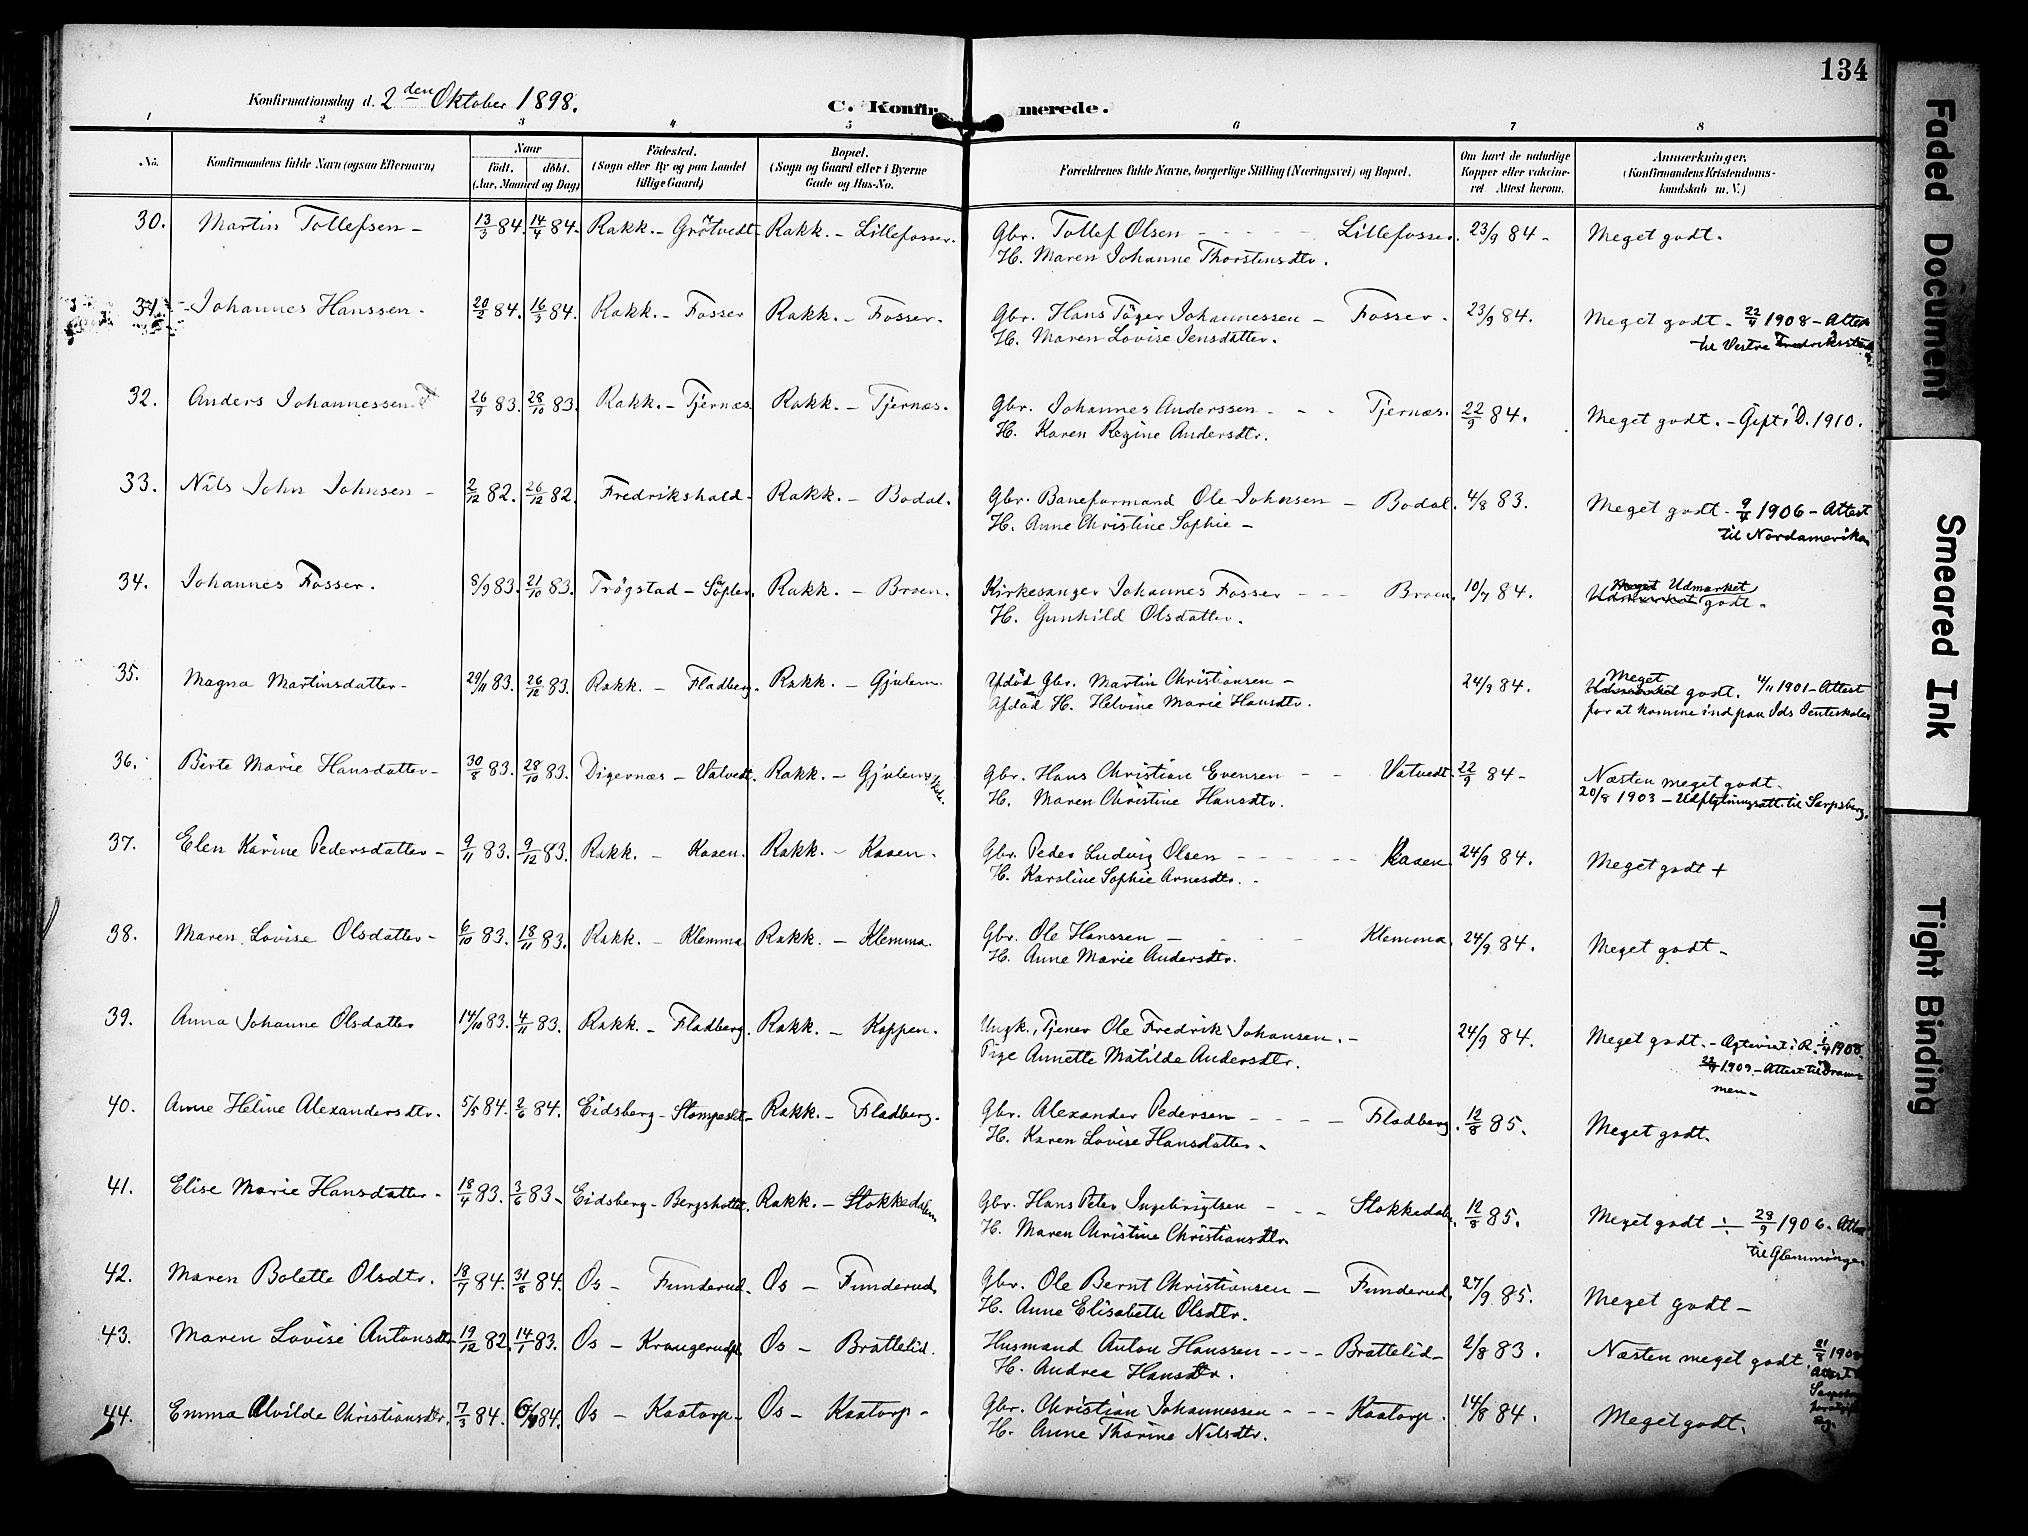 134
Konfirmationsdag d. 2den Oktober 1898.
C. Konfirmerede.
1 2 3 4 5 6 7 8
No. Konfirmandens fulde Navn (ogsaa Efternavn) Naar født. døbt. (Aar, Maaned og Dag) Fødested. (Sogn eller By og paa Landet tillige Gaard) Bopæl. (Sogn og Gaard eller i Byerne Gade og Hus-No. Forældrenes fulde Navne, borgerlige Stilling (Næringsvei) og Bopæl. Om havt de naturlige Kopper eller vakcineret Attest herom. Anmærkninger. (Konfirmandens Kristendomskundskab m. V.)
30. Martin Tollefsen - 13/3 84. 14/4 84. Rakk. - Grøtvedt Rakk. - Lillefosser. Gbr. Tollef Olsen - - - - Lillefosser. 23/9 84 - Meget godt.
H. Maren Johanne Thorstensdtr.
31. Johannes Hanssen - 20/2 84. 16/3 84. Rakk. - Fosser Rakk. - Fosser. Gbr. Hans Töger Johannessen - Fosser. 23/9 84. Meget godt. 22/4 1908 - Attest
H. Maren Lovise Jensdatter. til Vestre Fredrikstad
32. Anders Johannessen 26/9 83. 28/10 83. Rakk. - Tjernæs Rakk. - Tjernæs. Gbr. Johannes Anderssen - - - Tjernæs. 22/9 84. Meget godt. - Gift i D. 1910.
H. Karen Regine Andersdtr.
33. Nils John Johnsen - 2/12 82. 26/12 82. Fredrikshald. Rakk. - Bodal. Gbr. Baneformand Ole Johnsen - Bodal. 4/8 83. Meget godt - 9/4 1906 - Attest
H. Anne Christine Sophie - til Nordamerika
34. Johannes Fosser. 8/9 83. 21/10 83. Trøgstad - Rakk. - Braen. Kirkesanger Johannes Fosser - - - Braen. 10/7 84. Meget Udmærket
H. Gunhild Olsdatter. Udmærket godt -
35. Magna Martinsdatter - 29/11 83. 26/12 83. Rakk. - Fladberg. Rakk. - Gjulem. Afdöd Gbr. Martin Christiansen - 24/9 84. Meget
Afdöd H. Helvine Marie Hansdtr. Udmærket godt. 4/11 1901 - Attest
for at komme ind paa Ids Jenteskole
36. Berte Marie Hansdatter - 30/8 83. 28/10 83. Digernæs - Vatvedt. Rakk. - Gjulem Gbr. Hans Christian Evensen - - Vatvedt. 22/9 84 - Næsten meget godt.
H. Maren Christine Hansdtr. 20/8 1903 - Udflytningsatt. til Sarpsborg.
37. Elen Karine Pedersdatter - 9/11 83. 9/12 83. Rakk. - Kasen. Rakk. - Kasen. Gbr. Peder Ludvig Olsen - - - - Kasen 24/9 84. Meget godt +
H. Karoline Sophie Arnesdtr. -
38. Maren Lovise Olsdatter - 6/10 83. 18/11 83. Rakk. - Klemma Rakk. - Klemma. Gbr. Ole Hanssen - - - - Klemma. 24/9 84. Meget godt -
H. Anne Marie Andersdtr.
39. Anna Johanne Olsdatter 14/10 83. 4/11 83. Rakk. - Fladberg. Rakk. - Koppen. Ungk., Tjener Ole Fredrik Johansen. - 24/9 84. Meget godt. - 1908.
Pige Annette Matilde Andersdtr. 1909. - Attest til Dram-
men -
40. Anne Heline Alexandersdtr. 5/5 84. 2/6 84. Eidsberg - Rakk. - Fladberg. Gbr. Alexander Pedersen - - - - Fladberg. 12/8 85. Meget godt.
H. Karen Lovise Hansdatter -
41. Elise Marie Hansdatter - 18/4 83. 3/6 83 - Eidsberg - Rakk. - Stokkedalen Gbr. Hans Peter Ingebrigtsen - - - Stokkedalen. 12/8 85. Meget godt ÷ 28/9 1906. Attest
H. Maren Christine Christiansdtr. til Glemminge
42. Maren Bolette Olsdtr. 18/7 84. 31/8 84. Os - Funderud. Os - Funderud. Gbr. Ole Bernt Christiansen - Funderud. 27/9 85. Meget godt -
H. Anne Elisabette Olsdtr.
43. Maren Lovise Antonsdtr 19/12 82. 14/1 83. Os - Krangerud Os - Brattelid. Husmand Anton Hanssen - - - - Brattelid - 2/8 83. Næsten meget godt.
H. Andrea Hansdtr.
44. Emma Alvilde Christiansdtr. 7/3 84. 84. Os - Kaatorp - Os - Kaatorp - Gbr. Christian Johannessen - - - Kaatorp. 14/8 84. Meget godt.
H. Anne Thorine Nilsdtr.
Faded Document
Smeared Ink
Tight Binding